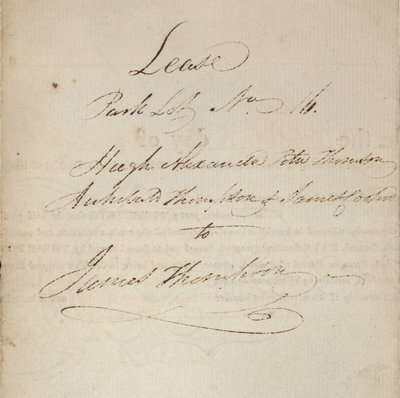 Lease
Park Lot No 14.
Hugh Alexander Peter Thomson
Archibald Thomson & James
to
James Thomson